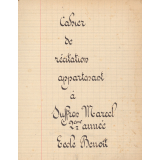 Cahier
de
récitation
appartenant
à
Suffres Marcel
2ème année
Ecole Benoit